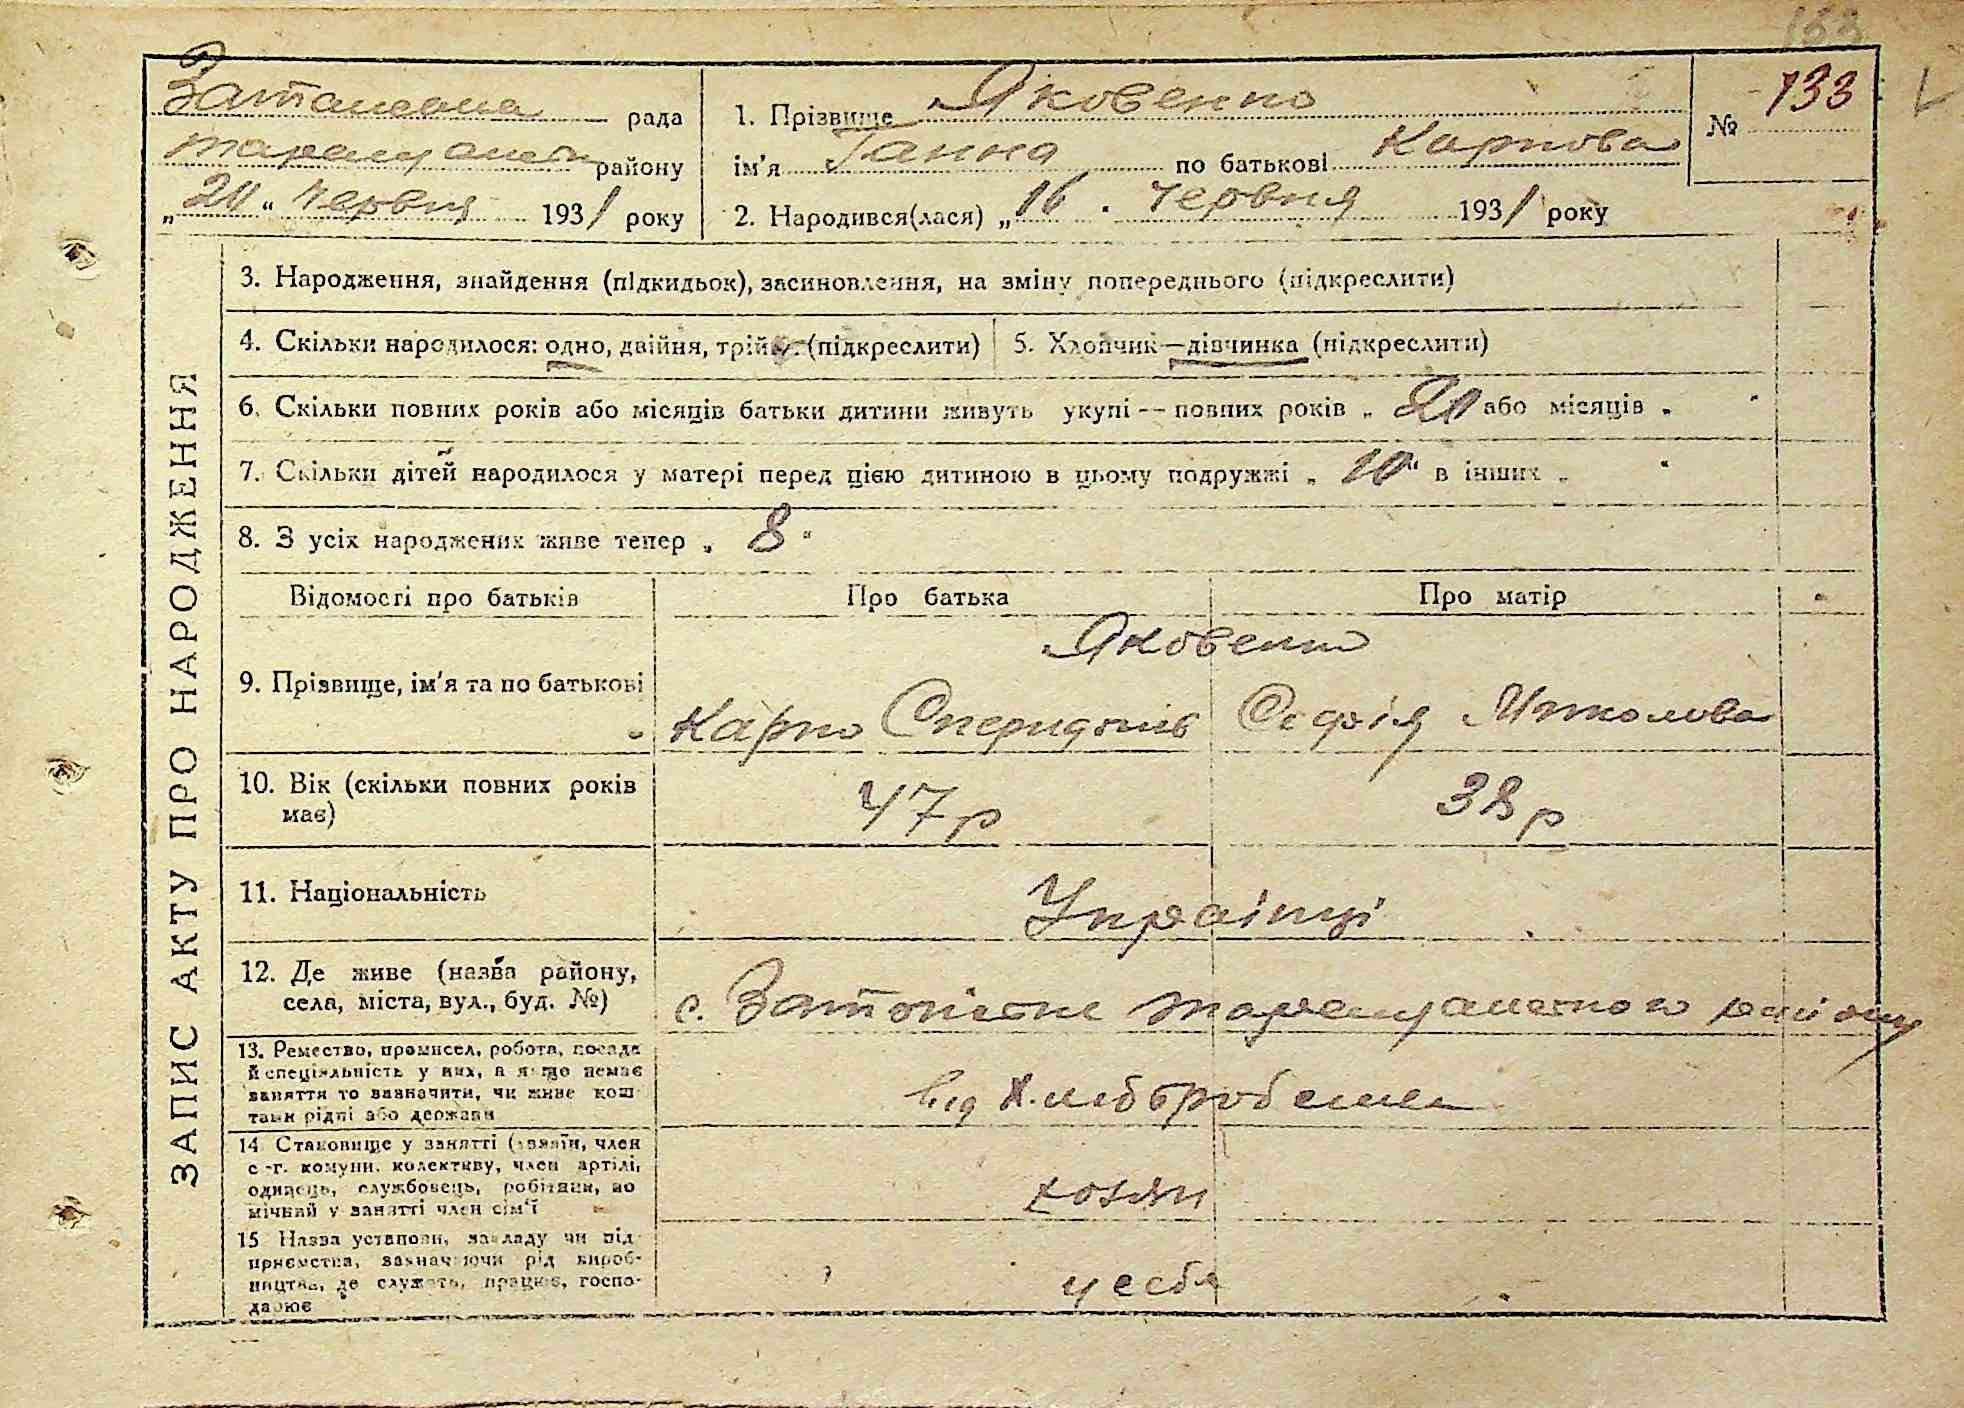 133
Затонська рада
Таращанськ району
„20“ Червня 1931 року
1. Прізвище Яковенко
ім'я Ганна по батькові Карпова
2. Народився(лася) „16. Червня 1931 року
№ 133
ЗАПИС АКТУ ПРО НАРОДЖЕННЯ
3. Народження, знайдення (підкидьок), засиновлення, на зміну попереднього (підкреслити)
4. Скільки народилося: одно, двійня, трійня (підкреслити) 5. Хлопчик—дівчинка (підкреслити)
6. Скільки повних років або місяців батьки дитини живуть укупі — повних років „ 20 або місяців „ “
7. Скільки дітей народилося у матері перед цією дитиною в цьому подружжі „ 10“ в інших „ “
8. З усіх народжених живе тепер „ 8“
Відомості про батьків Про батька Про матір
Яковенко
9. Прізвище, ім'я та по батькові
Карпо Спиридонів Софія Миколова
10. Вік (скільки повних років має) 47 р 38 р
11. Національність Українці
12. Де живе (назва району, села, міста, вул., буд. №)
с. Затонське Таращанського району
13. Ремество, промисел, робота, посада
й спеціяльність у них, а якщо немає
заняття то зазначити, чи живе кош-
тами рідні або держави
від хліборобства
14. Становище у занятті (хазяїн, член
с.-г. комуни, колективу, член артілі,
одинець, службовець, робітник, по
мічний у занятті член сім'ї
хозяи
15 Назва установи, закладу чи під-
приємства, зазначаючи рід вироб-
ництва, де служить, працює, госпо-
дарює
у себя